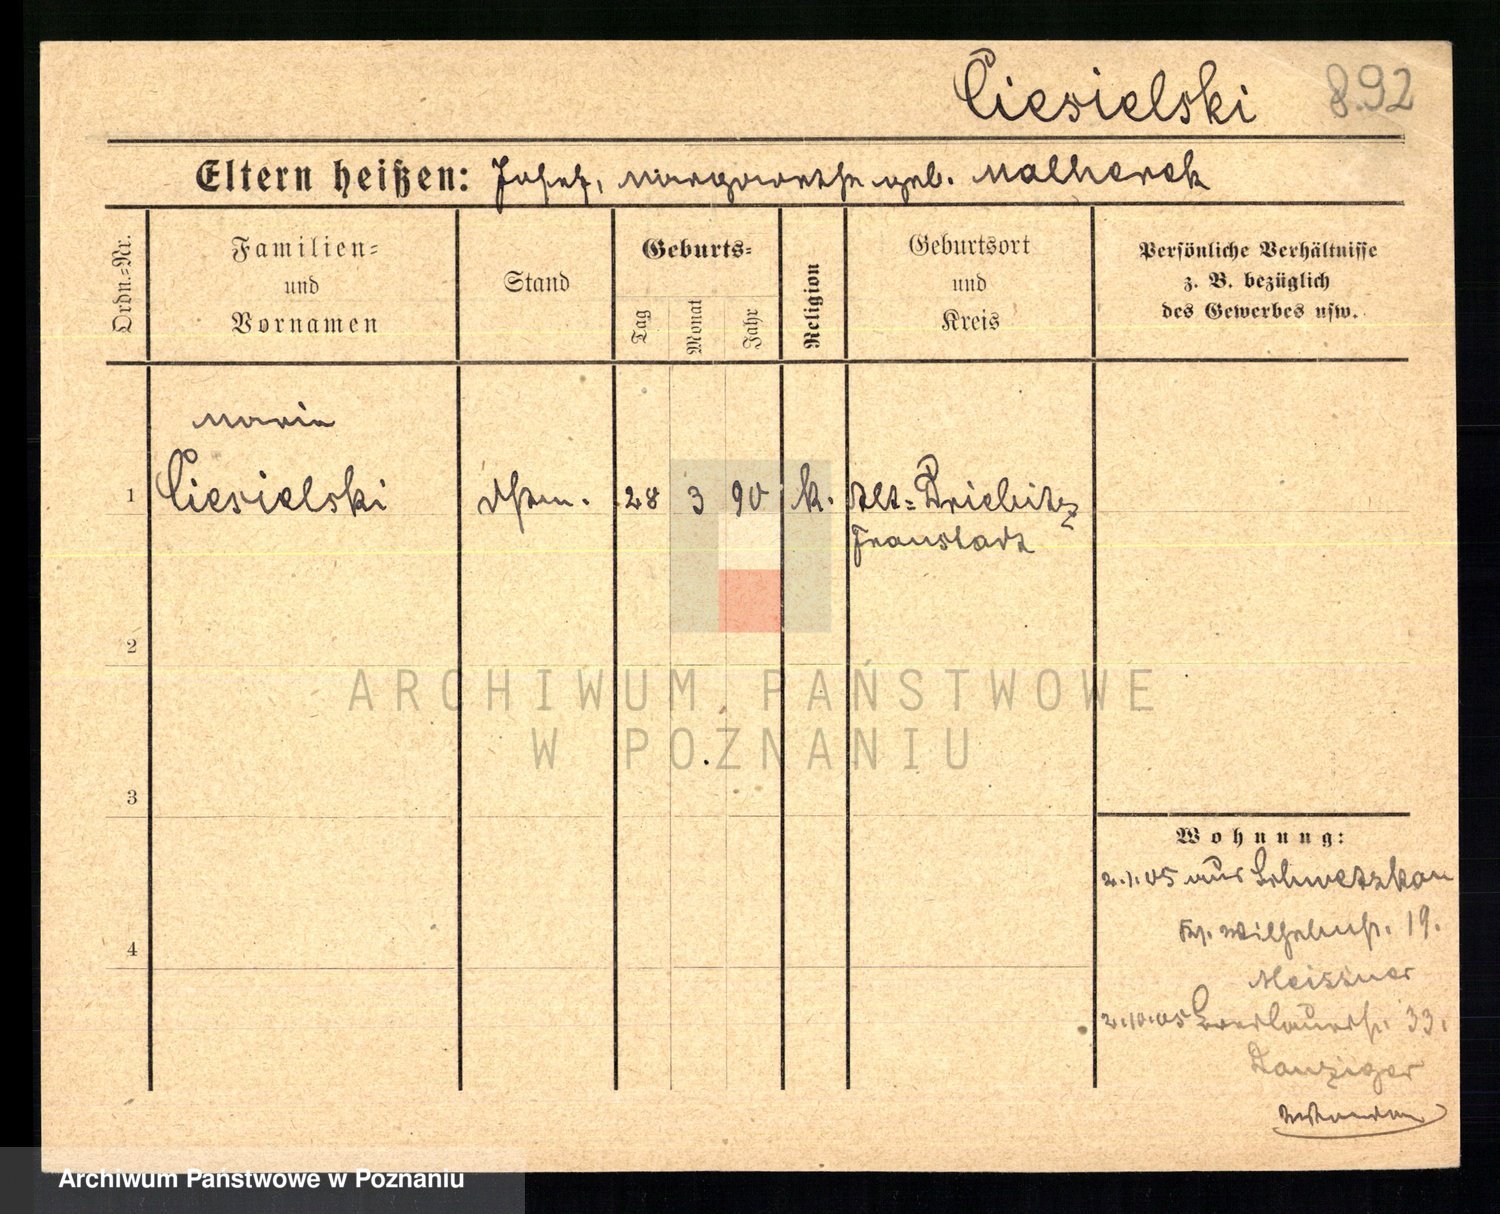 Ciesielski 892
Eltern heißen: Josef, Margarethe geb. Malherek
Ordn.=Nr.
Familien=
und
Vornamen
Stand
Geburts=
Tag
Monat
Jahr
Religion
Geburtsort
und
Kreis
Persönliche Verhältnisse
z. B. bezüglich
des Gewerbes usw.
Maria
1 Ciesielski 28 3 90 k. Alt=Driebitz
Fraustadt
2
3
4
ARCHIWUM PAŃSTWOWE
W POZNANIU
Wohnung:
2.1.05 aus Schwetzkau
Wilhelmstr. 19.
Meissner
2.10.05 33.
Danziger
Archiwum Państwowe w Poznaniu